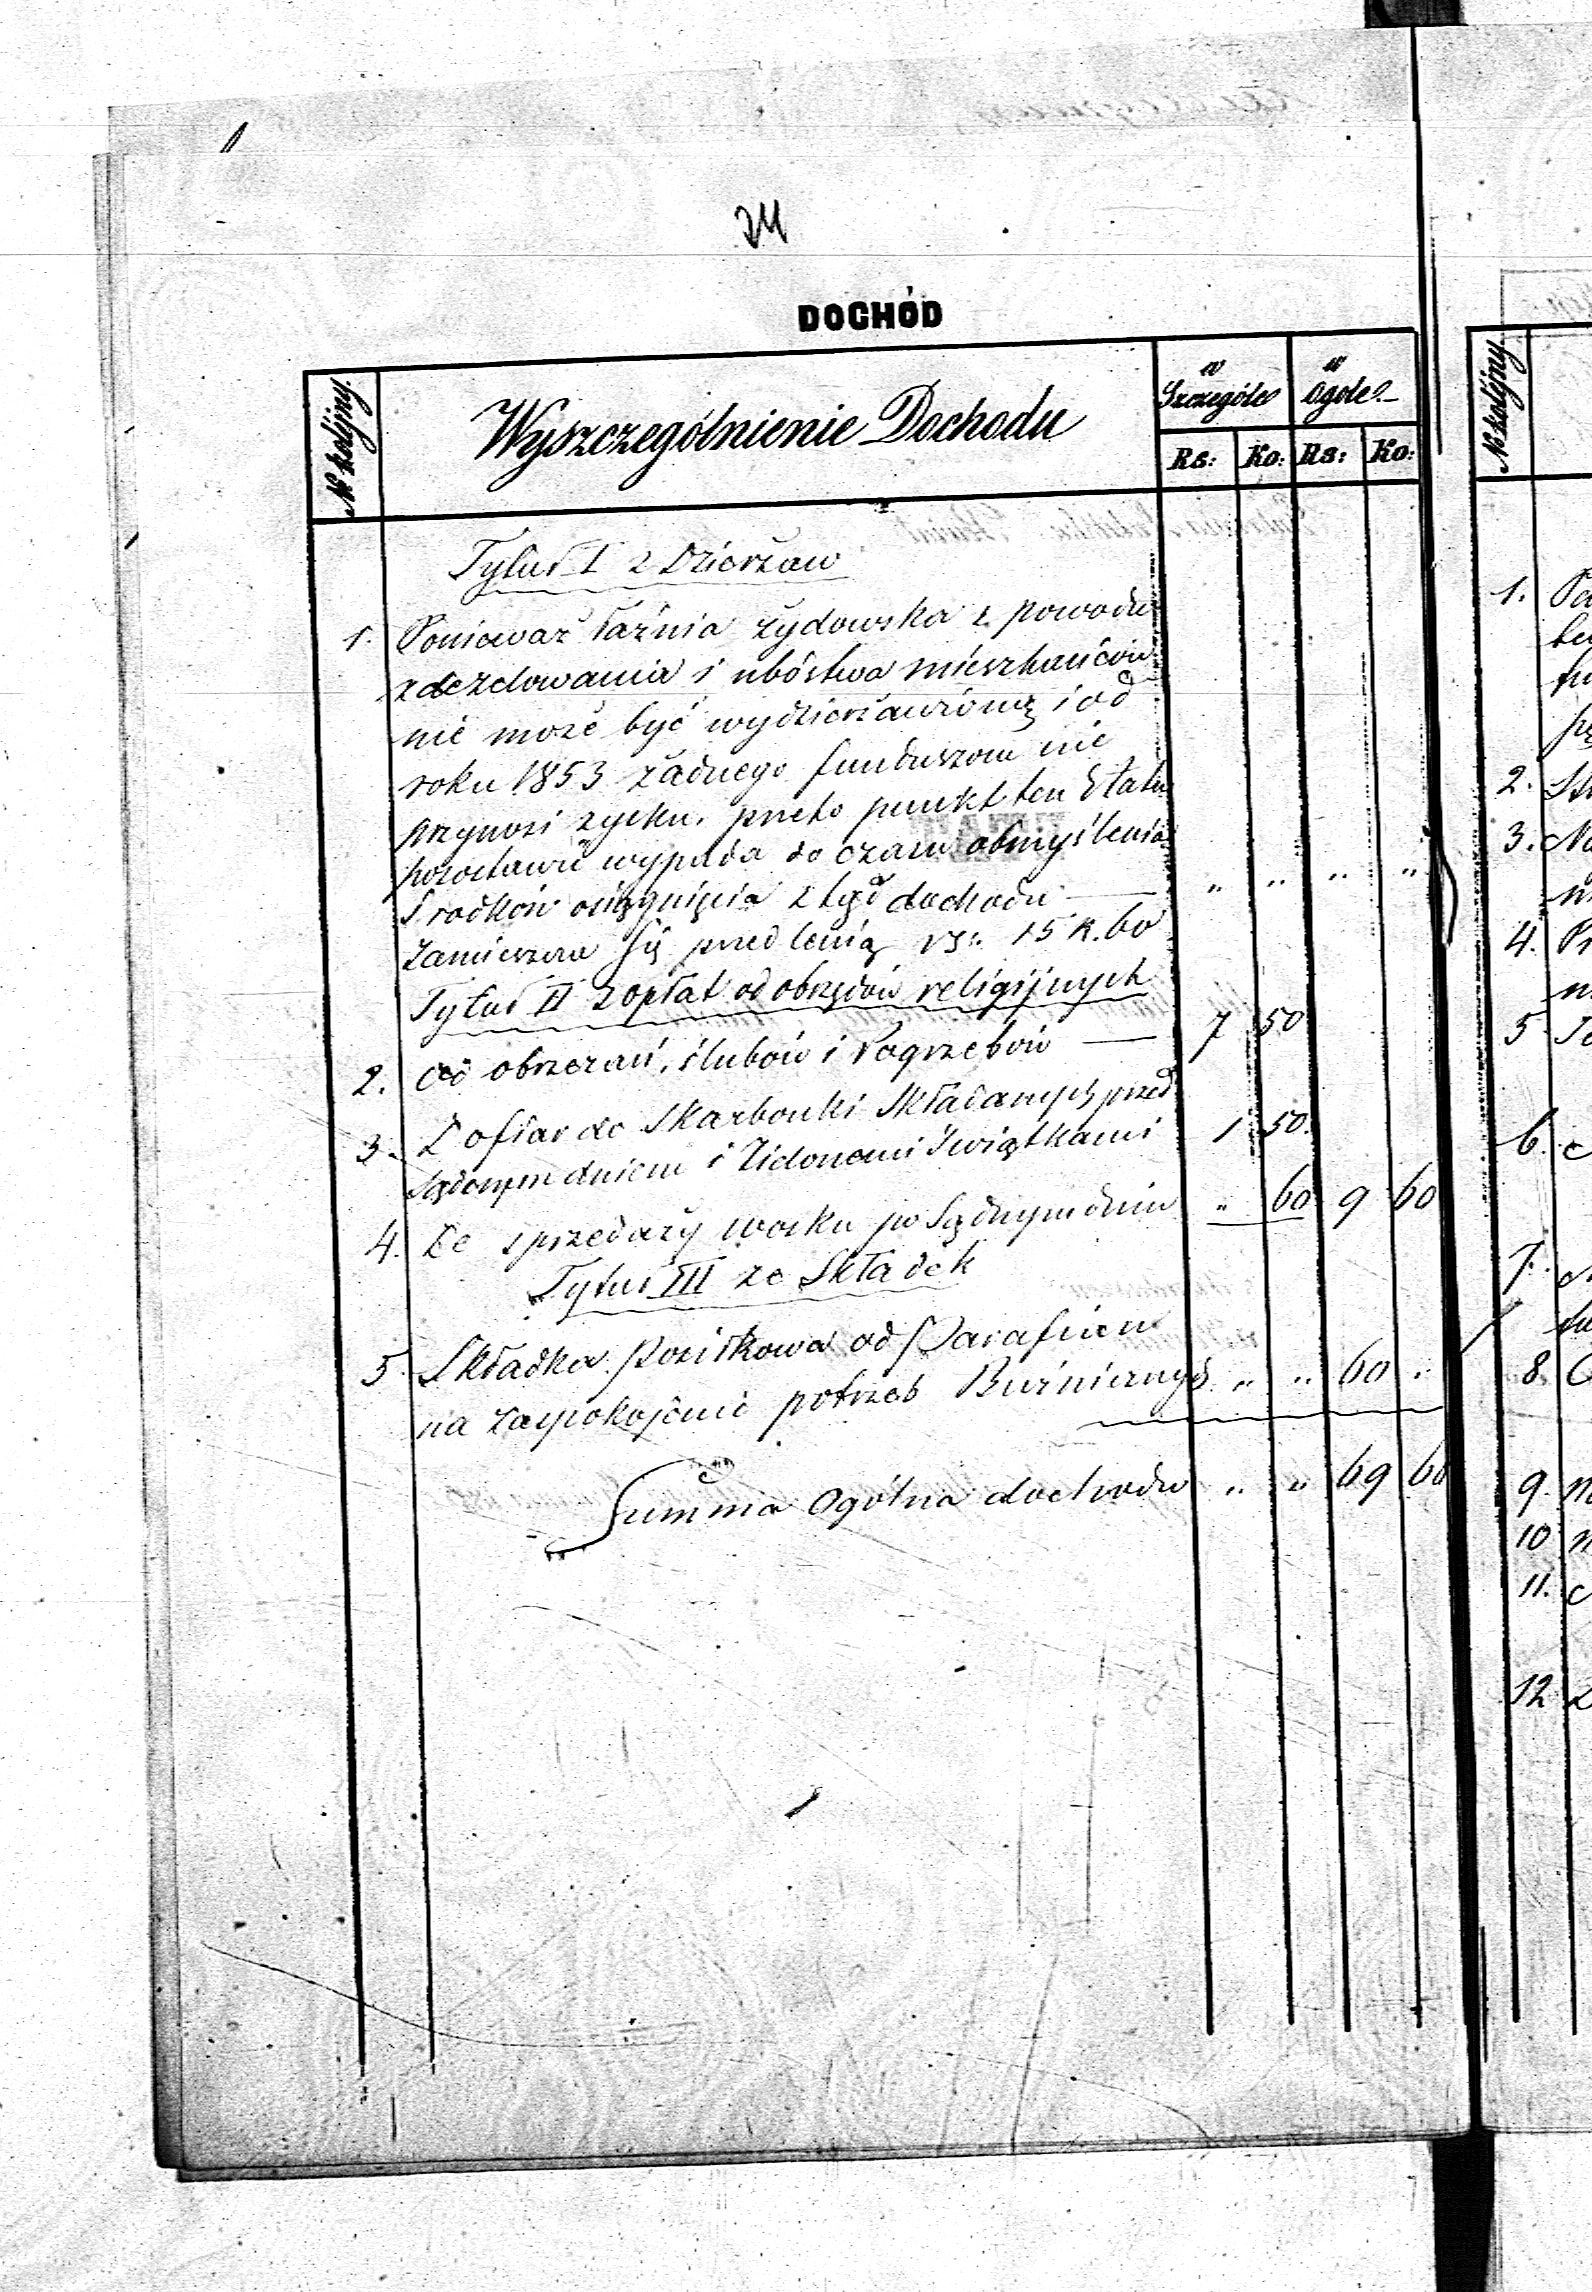 24
DOCHÓD
No kolejny.
Wyszczególnienie Dochodu
w Szczególe
w Ogóle.
Rs: Ko: Rs: Ko:
Tytuł I z Dzierżaw
1. Ponieważ łaźnia żydowska z powodu
zdezelowania i ubóstwa mieszkańców
nie może być wydzierżawioną i od
roku 1853 żadnego funduszom nie
przynosi zysku, przeto punkt ten Etatu
pozostawić wypada do czasu obmyślenia
środków osiągnięcia z tąd dochodu — " " " "
zamieszcza się przed lenią rs: 15 k. 60
Tytuł II z opłat od obrzędów religijnych
2. Od obrzezań, ślubów i Pogrzebów — 7 50
3. Z ofiar do Skarbonki Składanych przed
Sądnym dniem i Zielonemi Świątkami 1 50.
4. Ze sprzedaży wosku po Sądnym dniu " 60 9 60
Tytuł III ze Składek
5. Składka Posiłkowa od Parafian
na zaspokojenie potrzeb Bużnicznych " " 60 "
Summa Ogólna dochodu " " 69 60
No kolejny
1.
2.
3.
4.
5
6.
7.
8
9.
10
11.
12